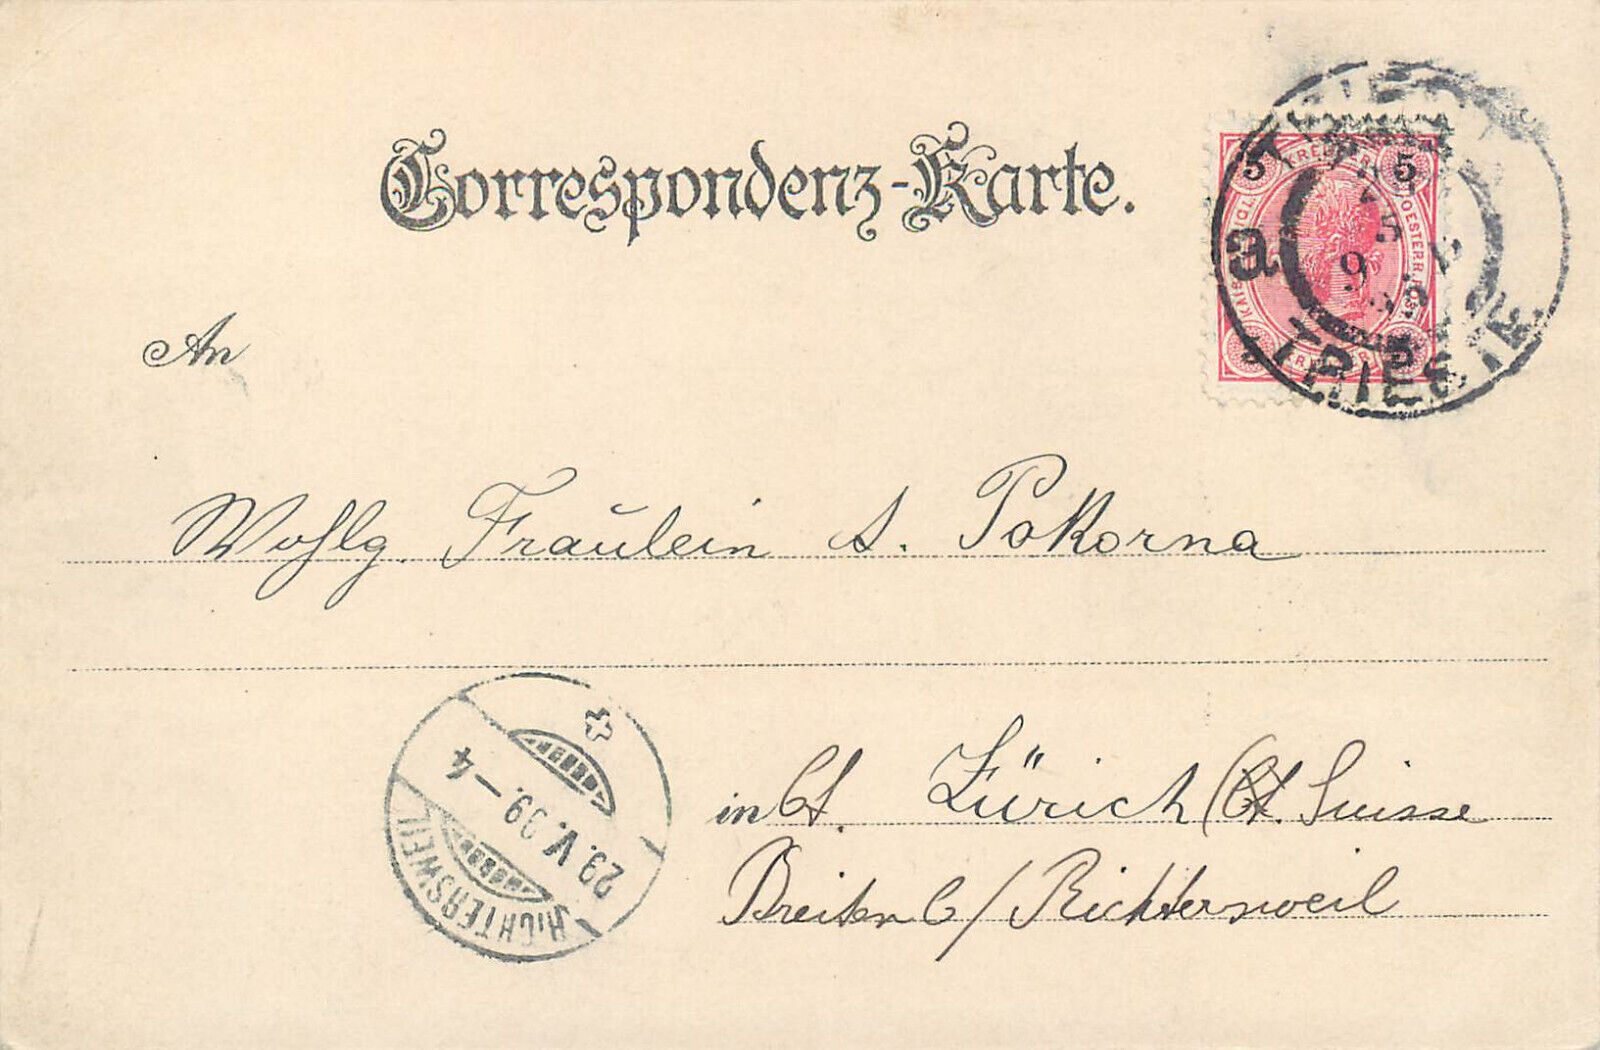 Correspondenz-Karte.
TRIEST
5 5
KREUZER
a
9
TRIESTE
An
Wohlg. Fräulein A. Pokorna
in Ct. Zürich (Ct. Suisse
Breiten b/Richtersweil
RICHTERSWEIL
29.V.99.–4